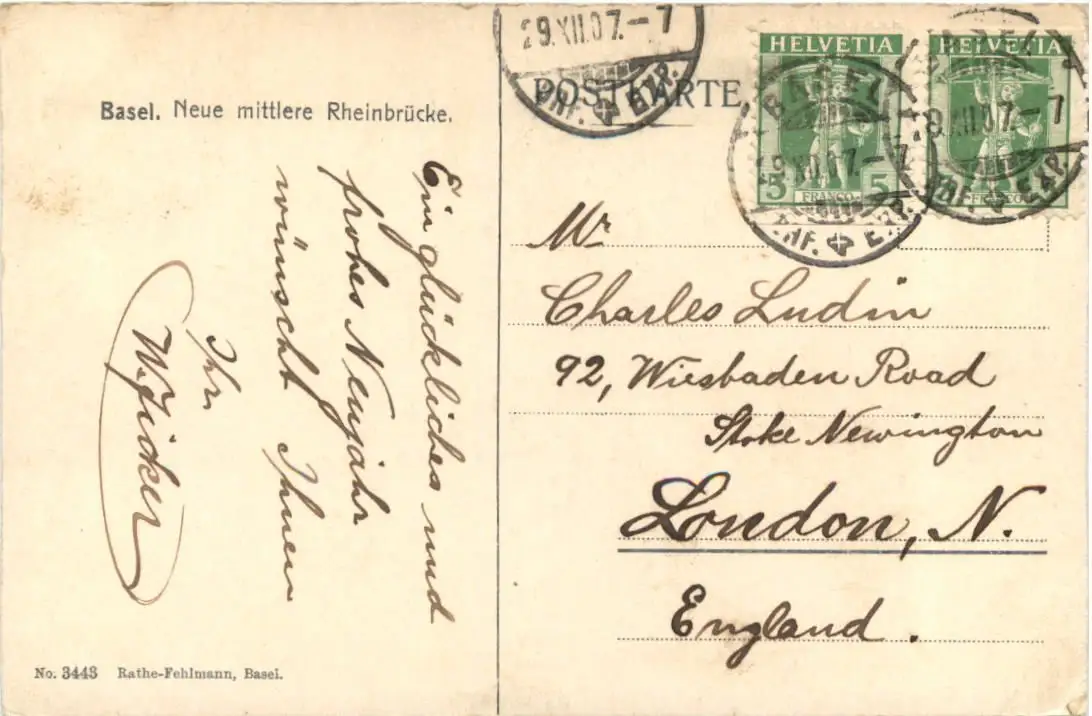 Basel. Neue mittlere Rheinbrücke.
Ein glückliches und
frohes Neujahr
wünscht Ihnen
Ihr
No. 3443 Rathe-Fehlmann, Basel.
29.XII.07.-7
BHF. EXP.
POSTKARTE
HELVETIA
5 5
FRANCO
HELVETIA
FRANCO
BASEL
29.XII.07.-7
BHF. EXP.
BASEL
29.XII.07.-7
BHF. EXP.
Mr
Charles Ludin
92, Wiesbaden Road
Stoke Newington
London, N.
England.